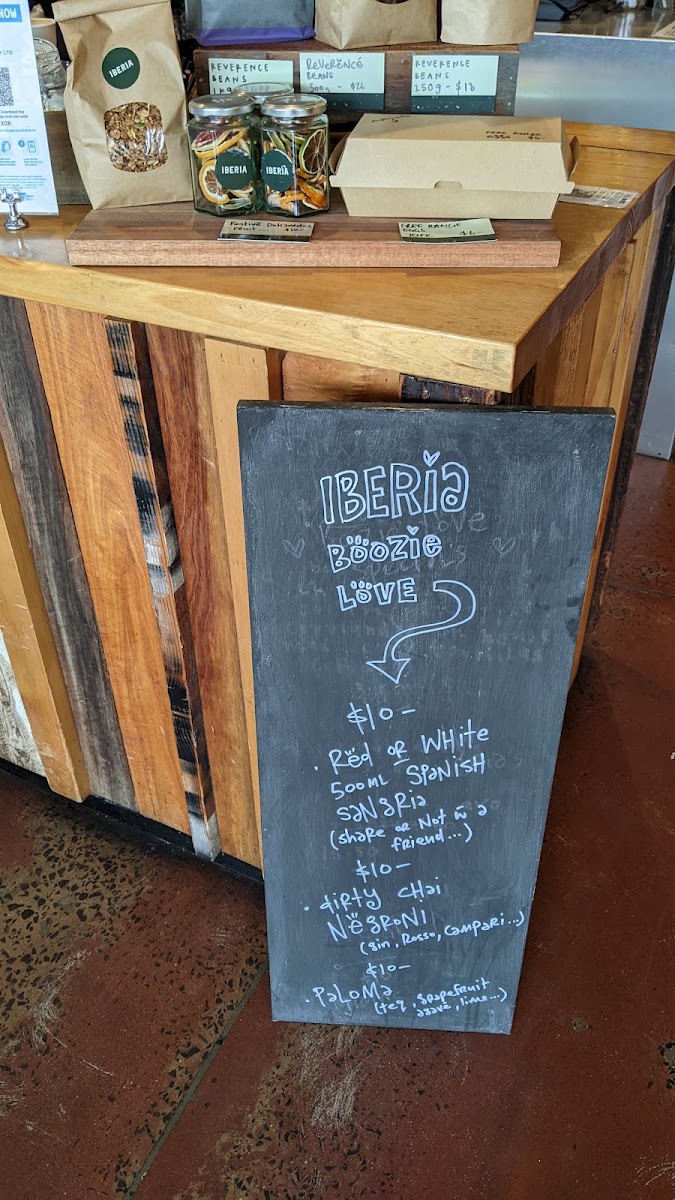 NOW
IBERIA
REVERENCE
BEANS
1KG
REVERENCE
BEANS
500g - $26
REVERENCE
BEANS
250g - $18
IBERIA
IBERIA
FREE RANGE
Festive Dehydrated
Fruit ..... $10-
FREE RANGE
EGGS
$6-
IBERIA
BOOZIE
LOVE
$10-
. Red OR WHITE
500ML SPANISH
SANGRIA
(share OR Not w a
friend...)
$10-
. dirty CHAI
NEGRONI
(gin, Rosso, Campari...)
$10-
. PALOMA
(teq, grapefruit
agave, lime...)